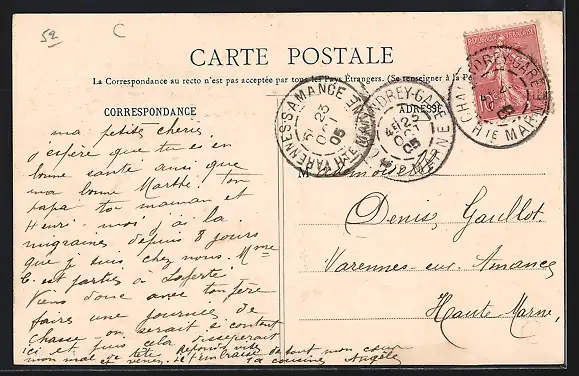 52
C
CARTE POSTALE
La Correspondance au recto n'est pas acceptée par tous les Pays Étrangers. (Se renseigner à la
CORRESPONDANCE
ADRESSE
REPUBLIQUE FRANÇAISE
VARENNES-S-AMANCE
23
OCT
05
HTE MARNE
CHAUDREY-GARE
23
OCT
05
HTE MARNE
05
HTE MARNE
ma petite chérie,
j'espère que tu es en
bonne santé ainsi que
ma bonne Marthe ton
papa ta maman et
Henri. moi j'ai la
migraine depuis 8 jours
que je suis chez nous. Mme
C. est partie à Laferté
Viens donc avec ton père
faire une journée de
chasse on serait si content
ici et puis cela dissiperait
mon mal de tête Réponds vite
et venez. Je t'embrasse de tout mon cœur
ta cousine Angèle
Mademoiselle
Denise Gaillot
Varennes-sur-Amance
Haute Marne,